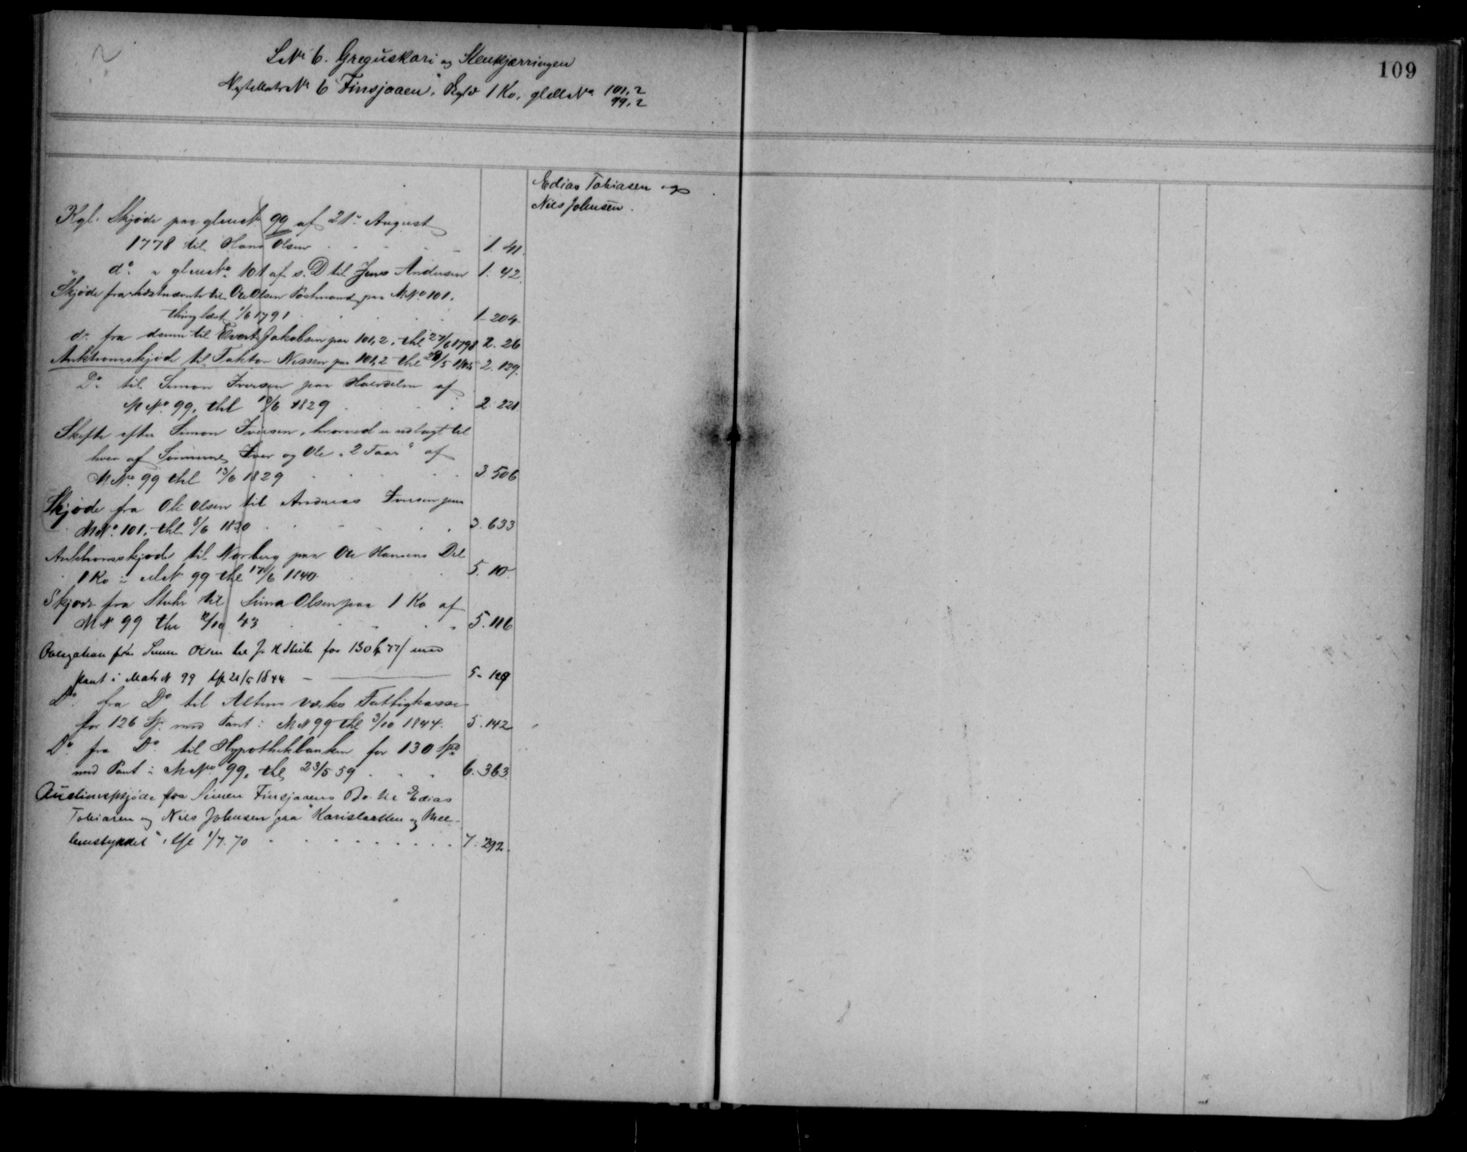 109
L.No 6. Greguskari og Stenkjærringen
Nytellatr No 6 "Finsjoaen", Skyld 1 Ko, gl.ell No 101,2
99,2
Edias Tobiasen og
Nils Johnsen.
Kgl. Skjøde paa gl. No 99 af 21de August
1778 til Hans Olsen 1. 41.
do. " gl. No. 101 af s. D til Jens Andersen 1. 42.
Skjøde fra til Ole Olsen paa M.No 101.
thinglæst 1/6 1791 1. 204.
do. fra denne til Evert Jakobsen paa 101,2, thl 27/6 1798 2. 26
Auktionsskjøde til Faktor Nissen paa 101,2 thl 28/5 2. 129.
Do til Simon Iversen paa Halvdelen af
M No 99, thl 12/6 1829 2. 221
Skifte efter Simon Iversen, hvorved er udlagt til
hver af Simon, Iver og Ole "2 Faar" af
M No 99 thl 13/6 1829 3. 506
Skjøde fra Ole Olsen til Andreas Iversen paa
M.No. 101, thl. 8/6 1830 3. 633
Auktionsskjøde til Norberg paa Ole Hansens Del
1 Ko i M.N 99 thl 17/6 1840 5. 10.
Skjøde fra til Simon Olsen paa 1 Ko af
M N 99 thl /10 43 5. 116
Obligation fra Simon Olsen til J. for 130 77/ med
Pant i Matr N 99 21/5 1844 5 - 129
Do. fra Do til Altens værks Fattigkasse
for 126 Sp. med Pant i M N 99 thl 3/10 1844. 5. 142
Do. fra Do. til Hypothekbanken for 130 Spd
med Pant i M No 99, thl 23/5 59 6. 363.
Auctionsskjøde fra Simon Finsjoaens Bo til Edias
Tobiasen og Nils Johnsen paa "Karislatten og Mel-
lemstykket", lyst 1/7. 70 7. 292.